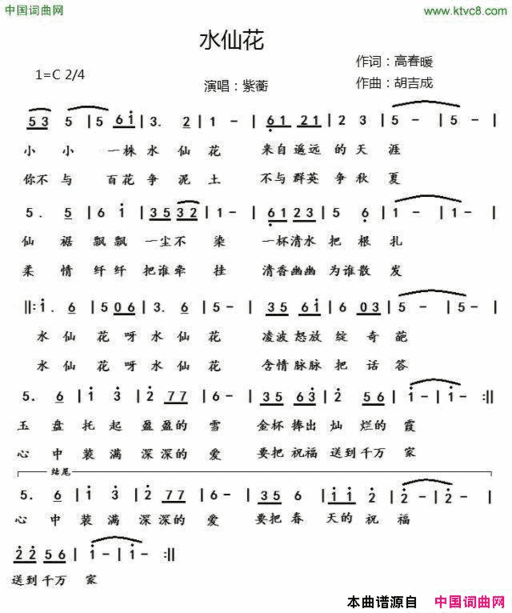 中国词曲网
www.ktvc8.com
水仙花
作词：高春暖
1=C 2/4
演唱：紫蘅
作曲：胡吉成
5 3 5 | 5 6 i | 3. 2 | 1 - | 6 1 2 1 | 2 3 | 5 - | 5 - |
小 小 一株 水 仙 花 来自 遥远 的 天 涯
你不 与 百花 争 泥 土 不与 群英 争 秋 夏
5 . 5 | 6 i | 3 5 3 2 | 1 - | 6 1 2 3 | 5 6 | 1 - | 1 - |
仙 裾 飘飘 一尘不 染 一杯清水 把 根 扎
柔 情 纤纤 把谁牵 挂 清香幽幽 为谁散 发
||: i . 6 | 5 0 6 | 3 . 6 | 5 - | 3 5 6 i | 6 0 3 | 5 - | 5 - |
水 仙 花 呀 水 仙 花 凌波 怒放 绽 奇 葩
水 仙 花 呀 水 仙 花 含情 脉脉 把 话 答
5 . 6 | i 3 | 2 7 7 | 6 - | 3 5 6 3 | 2 5 6 | i - | i - :||
玉 盘 托 起 盈 盈的 雪 金杯 捧出 灿 烂的 霞
心 中 装 满 深 深的 爱 要把 祝福 送到千万 家
结尾
5 . 6 | i 3 | 2 7 7 | 6 - | 3 5 6 | i i 2 | 2 - | 2 - |
心 中 装 满 深 深的 爱 要把 春 天的 祝 福
2 2 5 6 | i - | i - :||
送到 千万 家
本曲谱源自 中国词曲网